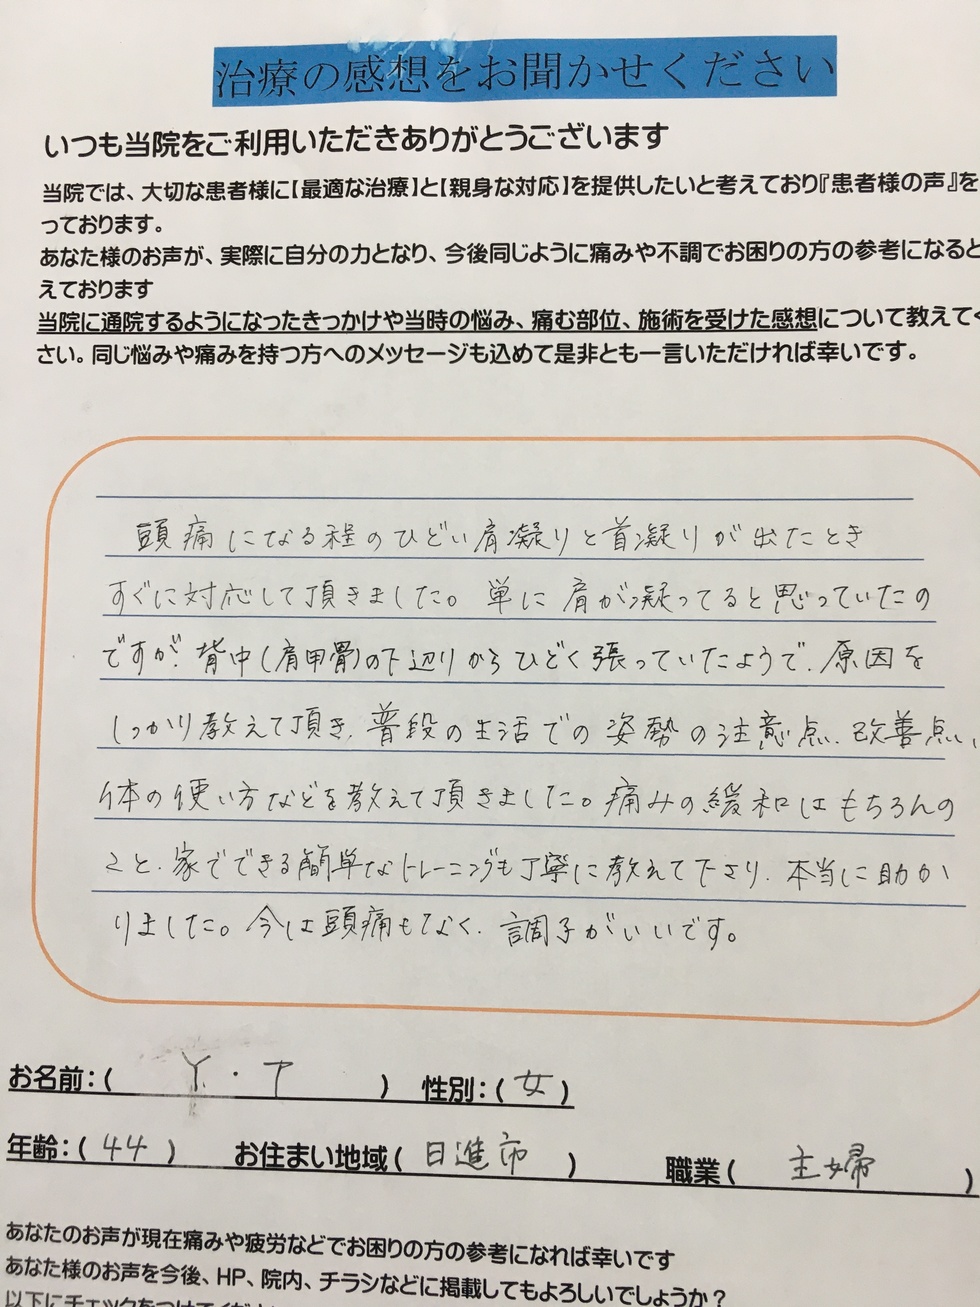 治療の感想をお聞かせください
いつも当院をご利用いただきありがとうございます
当院では、大切な患者様に【最適な治療】と【親身な対応】を提供したいと考えており『患者様の声』を
っております。
あなた様のお声が、実際に自分の力となり、今後同じように痛みや不調でお困りの方の参考になると
えております
当院に通院するようになったきっかけや当時の悩み、痛む部位、施術を受けた感想について教えてく
さい。同じ悩みや痛みを持つ方へのメッセージも込めて是非とも一言いただければ幸いです。
頭痛になる程のひどい肩凝りと首凝りが出たとき
すぐに対応して頂きました。単に肩が凝ってると思っていたの
ですが、背中(肩甲骨)の下辺りからひどく張っていたようで、原因を
しっかり教えて頂き、普段の生活での姿勢の注意点、改善点、
体の使い方などを教えて頂きました。痛みの緩和はもちろんの
こと、家でできる簡単なトレーニングも丁寧に教えて下さり、本当に助か
りました。今は頭痛もなく、調子がいいです。
お名前：( Y・T ) 性別：( 女 )
年齢：( 44 ) お住まい地域( 日進市 ) 職業( 主婦 )
あなたのお声が現在痛みや疲労などでお困りの方の参考になれば幸いです
あなた様のお声を今後、HP、院内、チラシなどに掲載してもよろしいでしょうか？
以下にチェックをつけてくだ